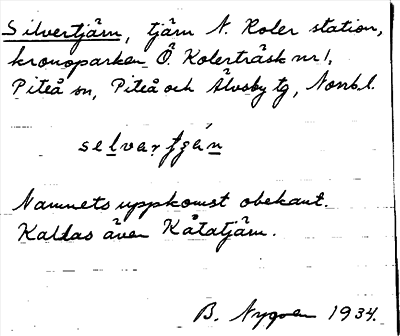 Silvertjärn, tjärn N. Koler station,
kronoparken Ö. Kolerträsk nr 1,
Piteå sn, Piteå och Älvsby tg, Norrb. l.
selvartjǵän
Namnets uppkomst obekant.
Kallas även Kåtatjärn.
B. Nygren 1934.